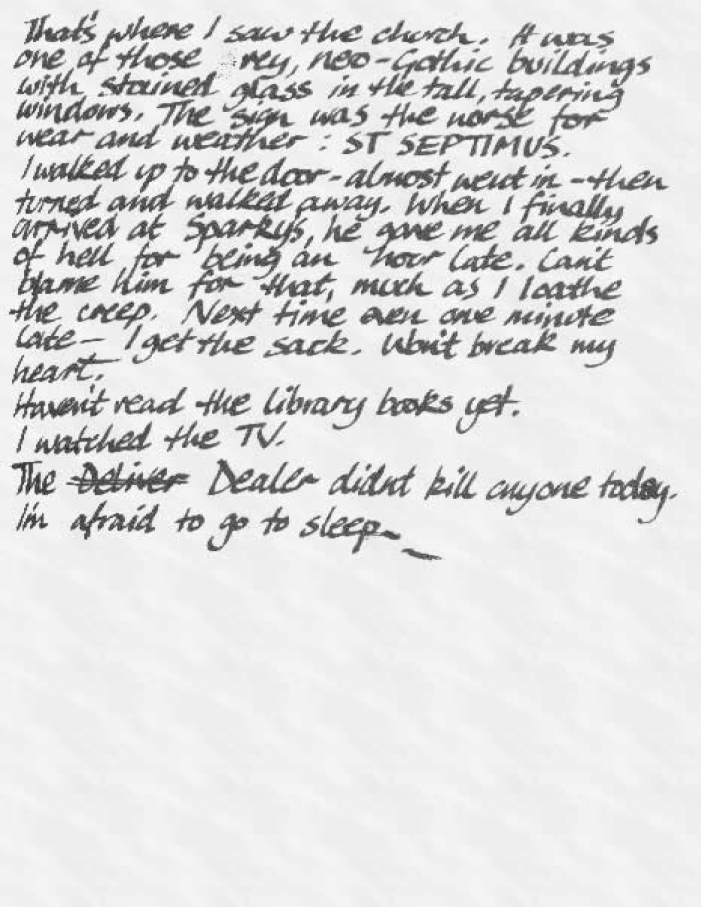 That's where I saw the church. It was
one of those rey, neo-Gothic buildings
with stained glass in the tall, tapering
windows. The sign was the worse for
wear and weather : ST SEPTIMUS.
I walked up to the door - almost went in - then
turned and walked away. When I finally
arrived at Sparky's, he gave me all kinds
of hell for being an hour late. Can't
blame him for that, much as I loathe
the creep. Next time even one minute
late - I get the sack. Won't break my
heart.
Haven't read the library books yet.
I watched the TV.
The Deliver Dealer didn't kill anyone today.
I'm afraid to go to sleep